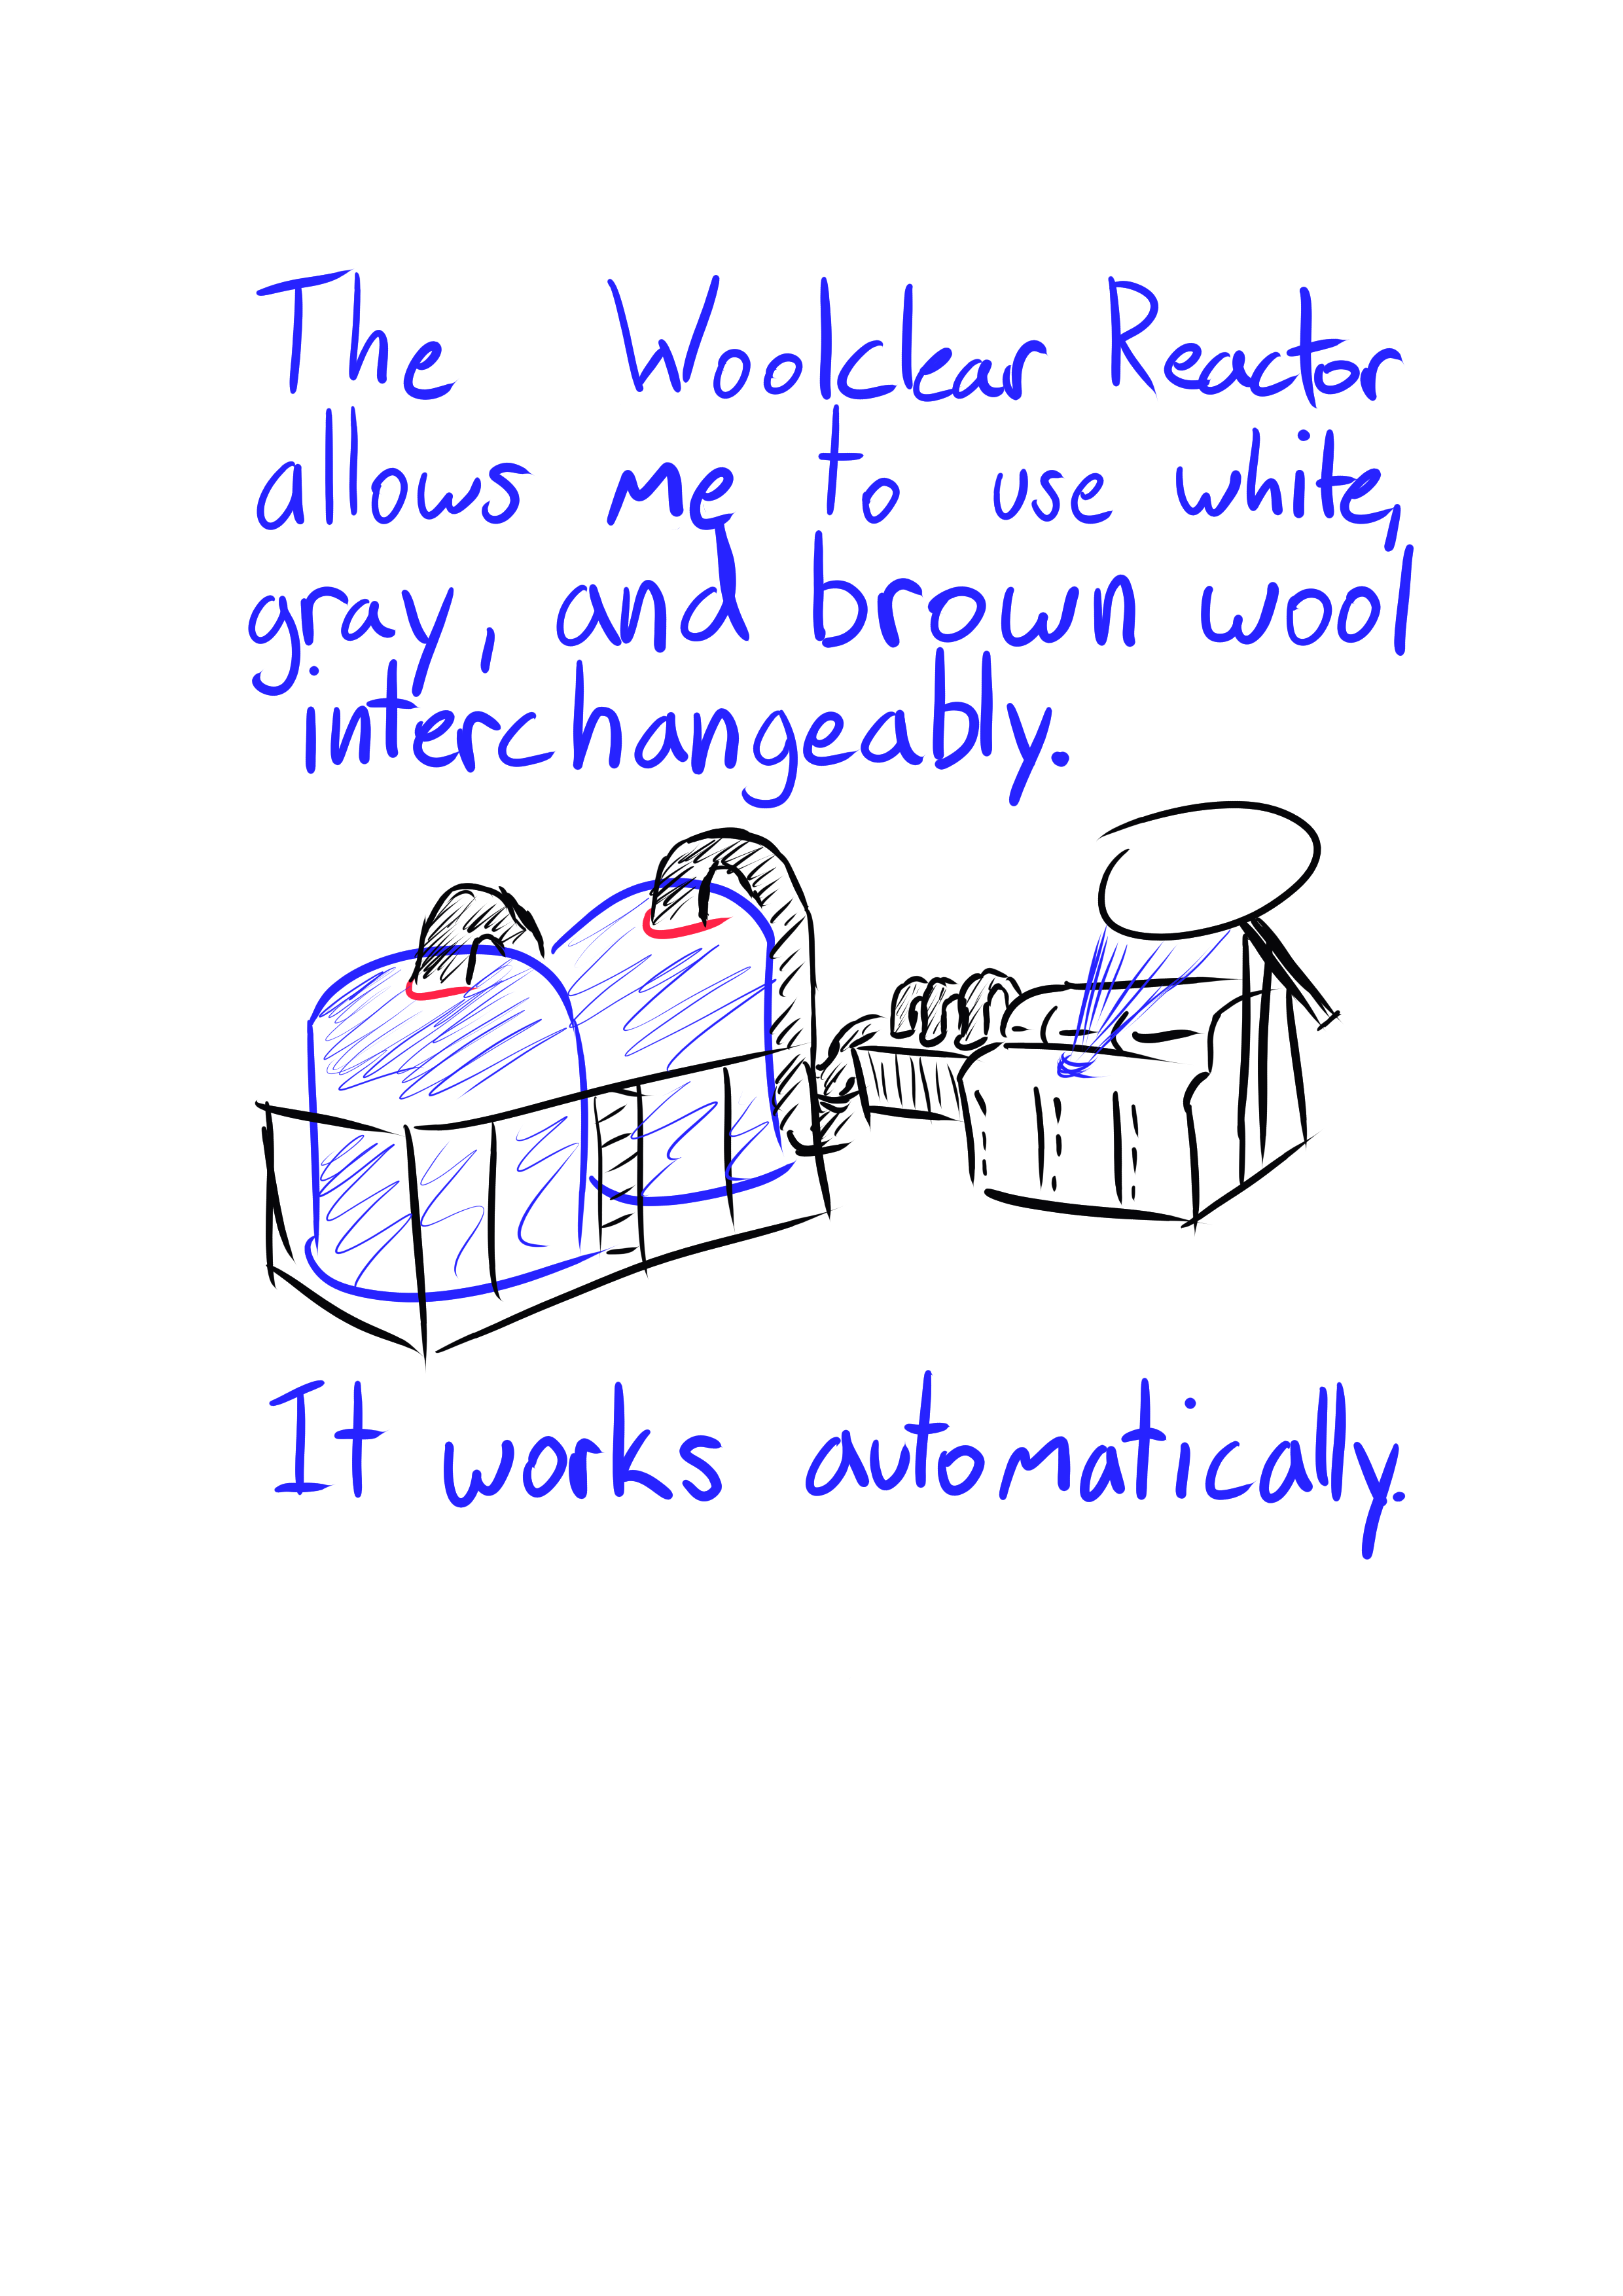 The Woolclear Reactor
allows me to use white,
gray, and brown wool
interchangeably.
It works automatically.